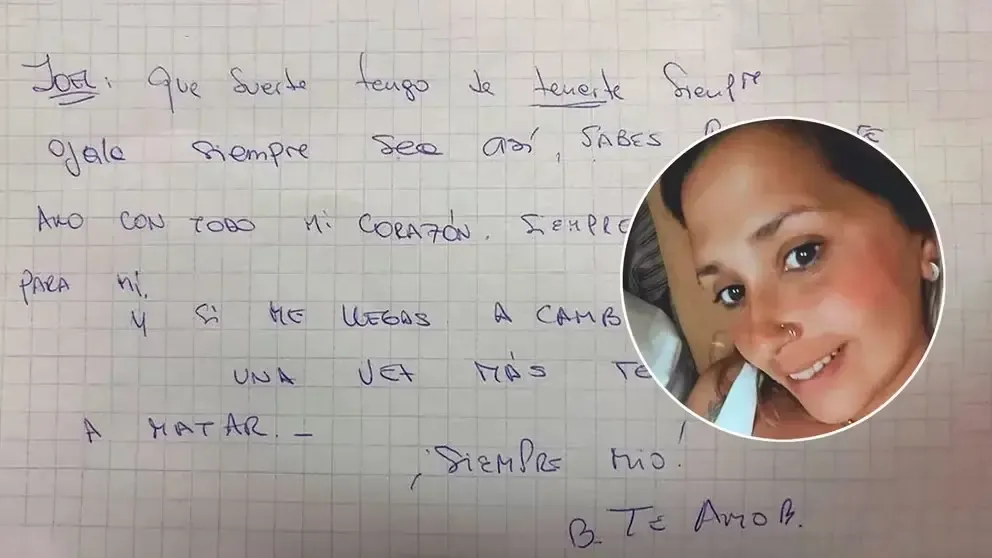 JOEL: que suerte tengo de tenerte siempre
Ojala siempre sea así, SABES TE
AMO CON TODO MI CORAZÓN. SIEMPRE
PARA MÍ.
Y SI ME LLEGAS A CAMB
UNA VEZ MÁS TE
A MATAR. _
¡SIEMPRE MIO!
B. TE AMO B.